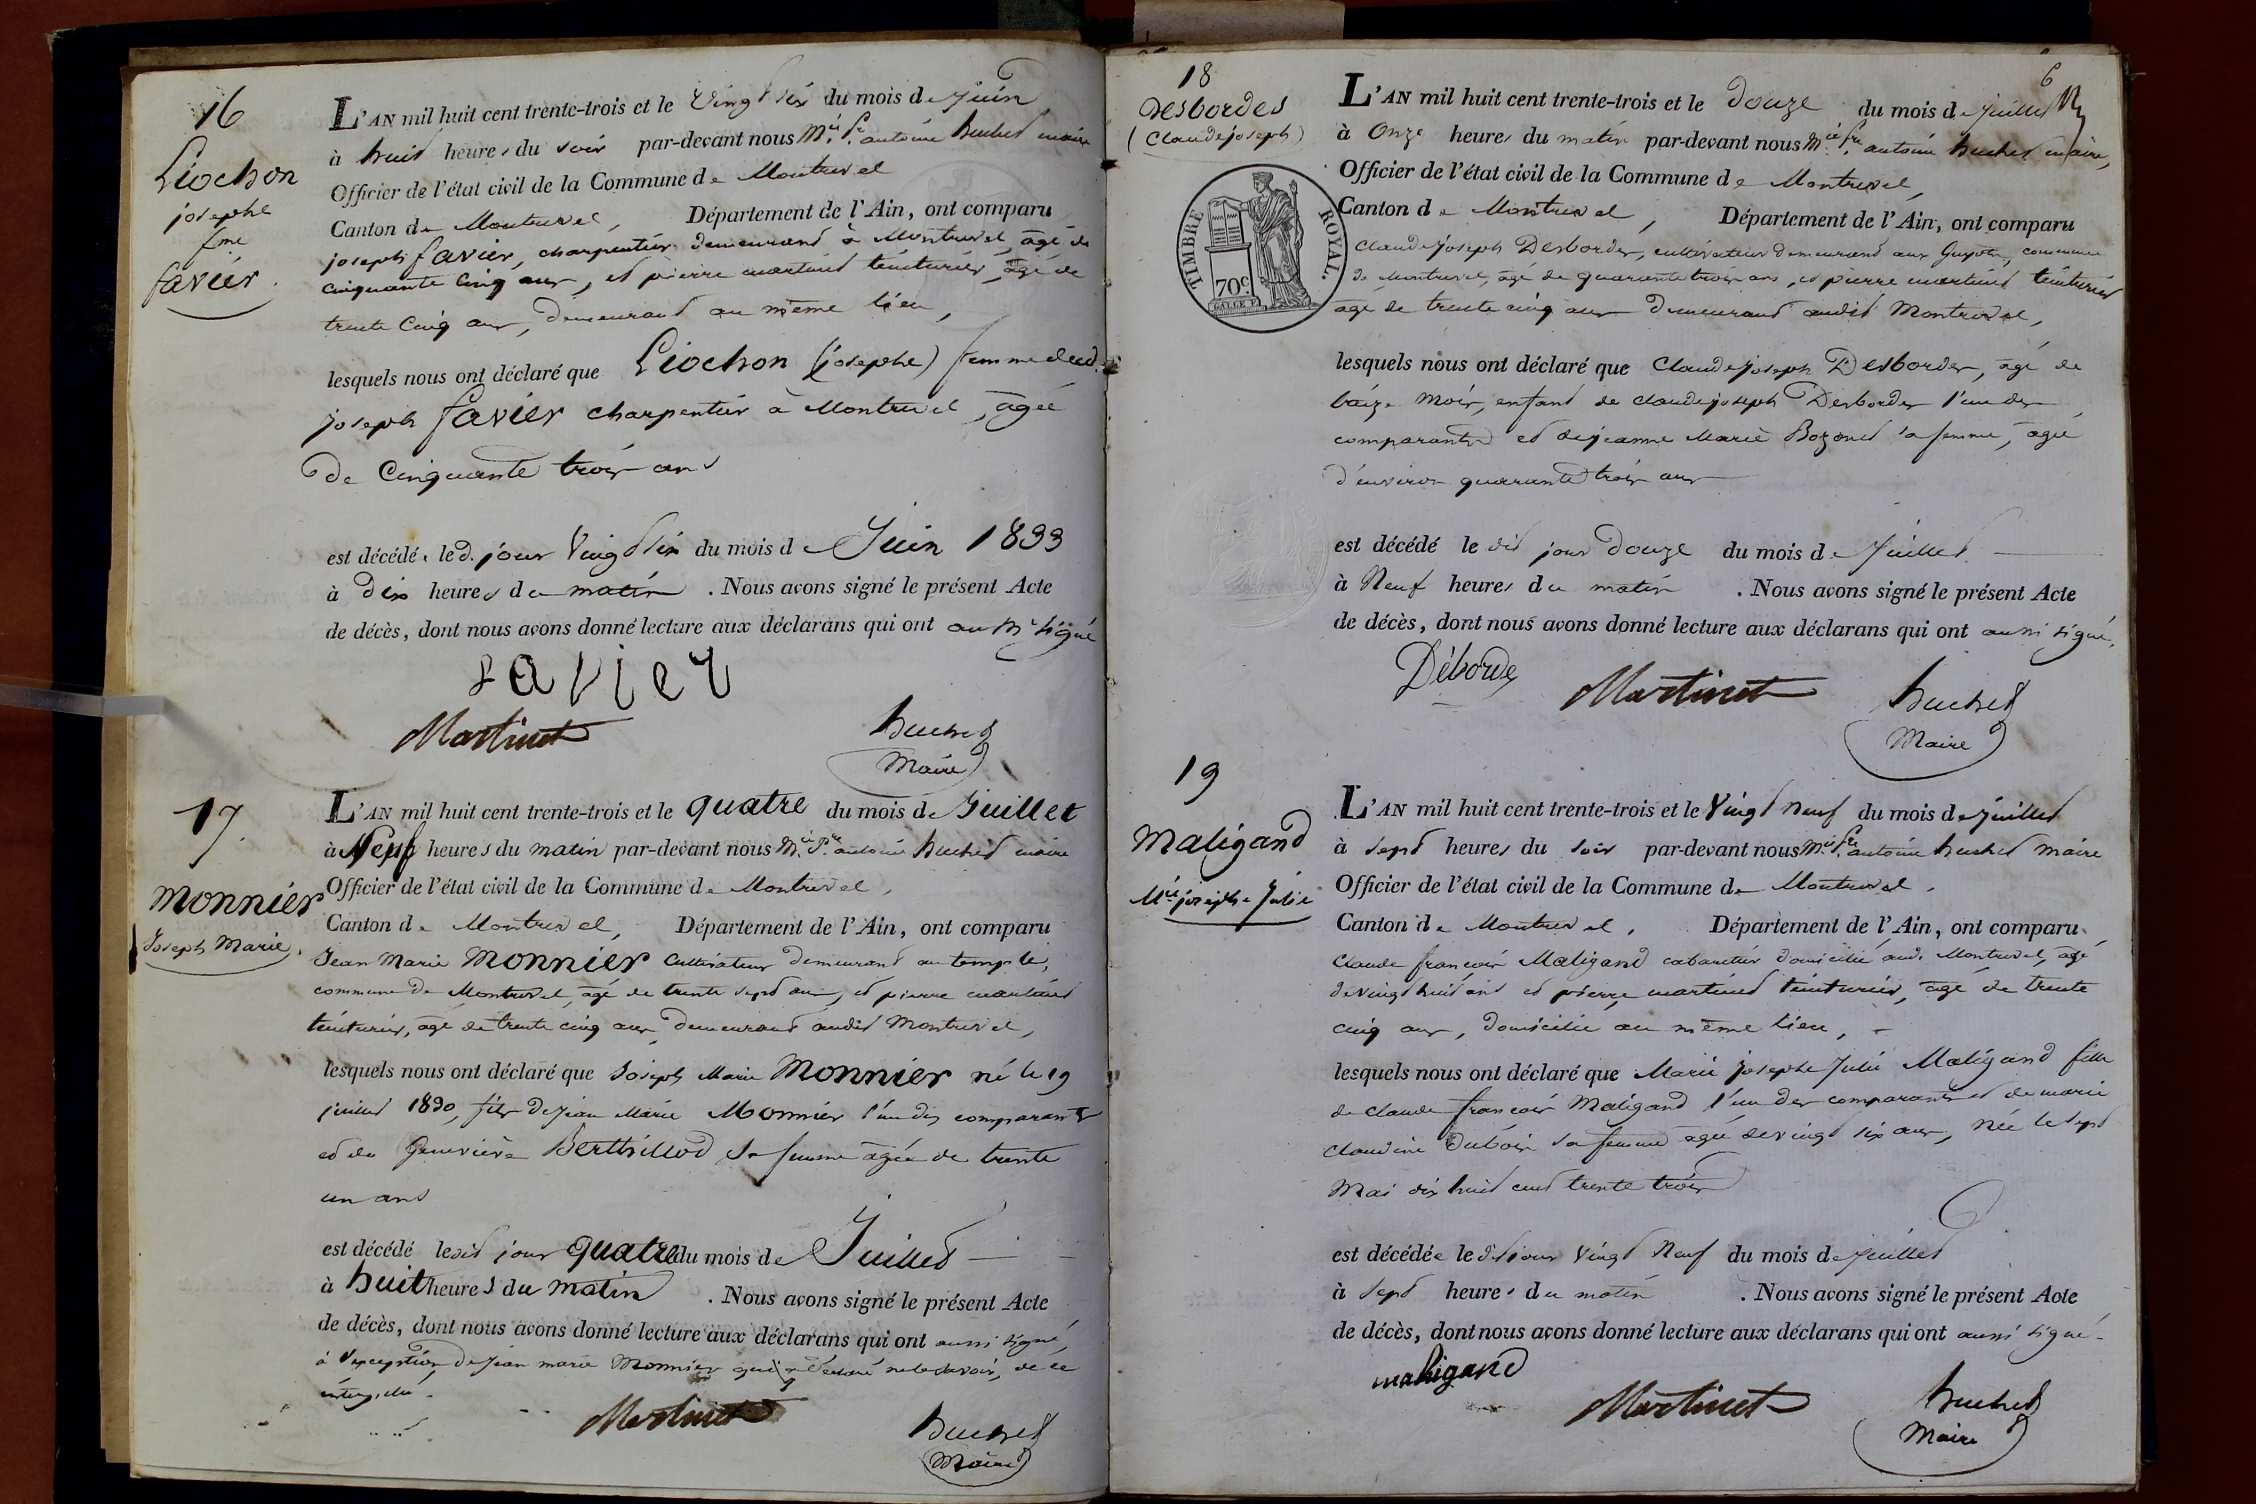 16
Liochon
josephe
fme
favier.
L'AN mil huit cent trente-trois et le Vingt six du mois de Juin
à huit heures du soir par-devant nous Mie. Pre. antoine buchet maire
Officier de l'état civil de la Commune de Montrevel
Canton de Montrevel, Département de l'Ain, ont comparu
joseph favier, charpentier demeurant à Montrevel, âgé de
cinquante cinq ans, et pierre martinet teinturier, âgé de
trente cinq ans, demeurant au même lieu,
lesquels nous ont déclaré que Liochon (josephe) femme dud.
joseph favier charpentier à Montrevel, âgée
de Cinquante trois ans
est décédée led. jour Vingt six du mois de Juin 1833
à dix heures du matin. Nous avons signé le présent Acte
de décès, dont nous avons donné lecture aux déclarans qui ont aussi signé
favier
Martinet
buchet
Maire
17.
Monnier
Joseph Marie.
L'AN mil huit cent trente-trois et le quatre du mois de Juillet
à Neuf heures du matin par-devant nous Mie. Pre. antoine buchet maire
Officier de l'état civil de la Commune de Montrevel,
Canton de Montrevel, Département de l'Ain, ont comparu
Jean Marie Monnier Cultivateur demeurant au temple,
commune de Montrevel, âgé de trente sept ans, et pierre martinet
teinturier, âgé de trente cinq ans, demeurant audit Montrevel,
lesquels nous ont déclaré que Joseph Marie Monnier né le 19
juillet 1830, fils de Jean Marie Monnier l'un des comparants
et de Geneviève Berthillod sa femme âgée de trente
un ans
est décédé ledit jour quatre du mois de Juillet
à huit heures du matin. Nous avons signé le présent Acte
de décès, dont nous avons donné lecture aux déclarans qui ont aussi signé,
à l'exception de Jean marie Monnier qui a déclaré ne le savoir, de ce
Martinet
buchet
Maire
6
18
Desbordes
(Claudejoseph)
TIMBRE ROYAL.
70c
L'AN mil huit cent trente-trois et le douze du mois de Juillet
à Onze heures du matin par-devant nous Mie. Pre. antoine buchet maire,
Officier de l'état civil de la Commune de Montrevel,
Canton de Montrevel, Département de l'Ain, ont comparu
Claudejoseph Desbordes, cultivateur demeurant aux Guyots, commune
de Montrevel, âgé de quarante trois ans, et pierre martinet teinturier
âgé de trente cinq ans demeurant audit Montrevel,
lesquels nous ont déclaré que Claudejoseph Desbordes, âgé de
treize Mois, enfant de claudejoseph Desbordes l'un des
comparants et de jeanne Marie Bozonet sa femme, âgée
d'environ quarante trois ans
est décédé le dit jour douze du mois de Juillet
à Neuf heures du matin. Nous avons signé le présent Acte
de décès, dont nous avons donné lecture aux déclarans qui ont aussi signé.
Déborde
Martinet
buchet
Maire
19
Maligand
Mie josephe Julie
L'AN mil huit cent trente-trois et le Vingt Neuf du mois de Juillet
à sept heures du soir par-devant nous Mie. Pre. antoine buchet maire
Officier de l'état civil de la Commune de Montrevel.
Canton de Montrevel. Département de l'Ain, ont comparu
Claude françois Maligand cabaretier domicilié aud. Montrevel, âgé
de vingt huit ans et pierre martinet teinturier, âgé de trente
cinq ans, domicilié au même lieu,
lesquels nous ont déclaré que Marie josephe Julie Maligand fille
de Claude françois Maligand l'un des comparants et de marie
claudine Dubois sa femme âgée de vingt six ans, née le sept
Mai dix huit cent trente trois
est décédée le dit jour Vingt Neuf du mois de Juillet
à sept heures du matin. Nous avons signé le présent Acte
de décès, dont nous avons donné lecture aux déclarans qui ont aussi signé.
maligand
Martinet
buchet
Maire